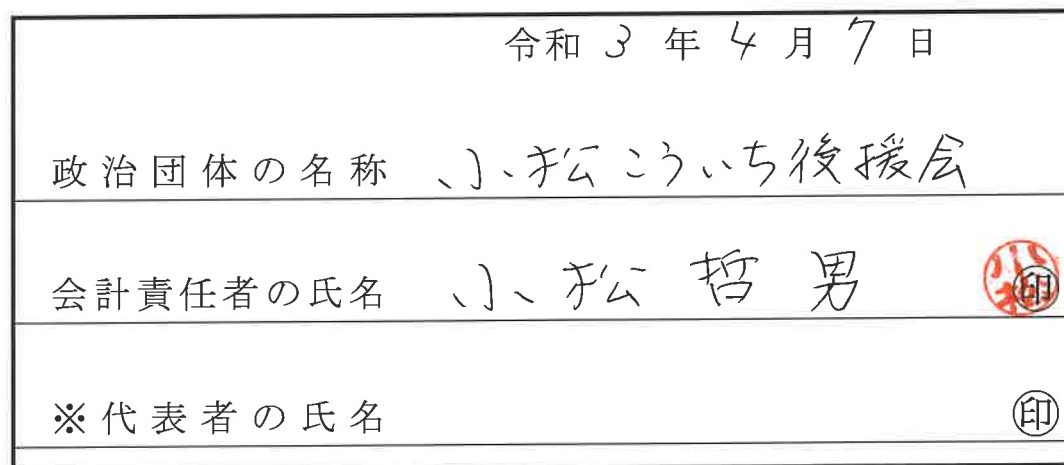 令和 3 年 4 月 7 日
政治団体の名称 小松こういち後援会
会計責任者の氏名 小松 哲男 小松 ㊞
※代表者の氏名 ㊞